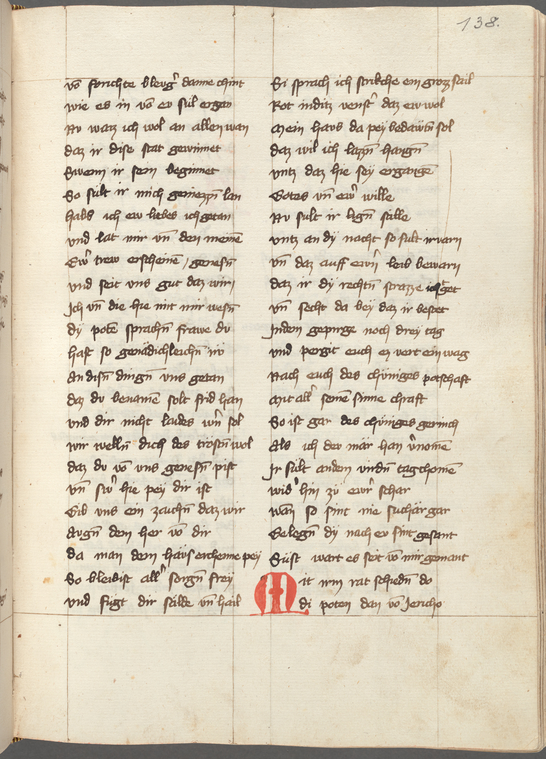 138.
võ forichte bleug᷑ danne chint
wie es in võ ew sul ergan
Nv waz ich wol an allen wan
daz ir dise stat gewinnet
Swenn ir sein beginnet
So sult ir mich geniezzn̄ lan
hab ich ew liebes icht getan
vnd lat mir vn̄ den meinē
Ew᷑ trew erscheinē / genesn̄
vnd seit vns gut daz wirn
Ich vn̄ die hie mit mir wesn̄
dy potē sprachn̄ frawe dv
hast so genädichleichn̄ nv
An disn̄ dingn̄ vns getan
daz dv benamē solt frid han
vnd dir nicht laides w᷑n sol
wir welln̄ dich des trostn̄ wol
daz dv võ vns genesn̄ pist
vn̄ sw᷑ hie pey dir ist
Gib vns ein zaichn̄ daz wir
Avgn̄ dem her võ dir
da man dem haus erchenne pey
So bleibist all᷑ sorgn̄ frey
vnd fugt dir sälde vn̄ hail
Si sprach ich strikche ein groz sail
Rot inditz venst᷑ daz ew wol
Mein haus da pey bedäwtn̄ sol
daz wil ich lazn̄ hangn̄
vntz daz hie sey ergangē
Gotes vn̄ ew᷑ wille
Nv sult ir lign̄ stille
vntz an dy nacht so sult ir varn
vn̄ daz auff ewrn̄ leib bewarn
daz ir dy rechtn̄ strazze icht get
vn̄ secht da bey daz ir bestet
Inden gepirge noch drey tag
vnd pergit euch ez vert ein wag
Nach euch des chüniges potschaft
Mit all᷑ seinē sinne chraft
So ist gar des chüniges gerinch
Als ich dew mär han v᷑nomē
Ir sült andem virdn̄ tag chomē
wid᷑ hin zü ewr᷑ schar
wan so sint die suchär gar
Gelegn̄ dy nach ew sint gesant
Sust wart es sert võ mir gemant
Mit irm rat schiedn̄ do
di poten dan võ Jericho